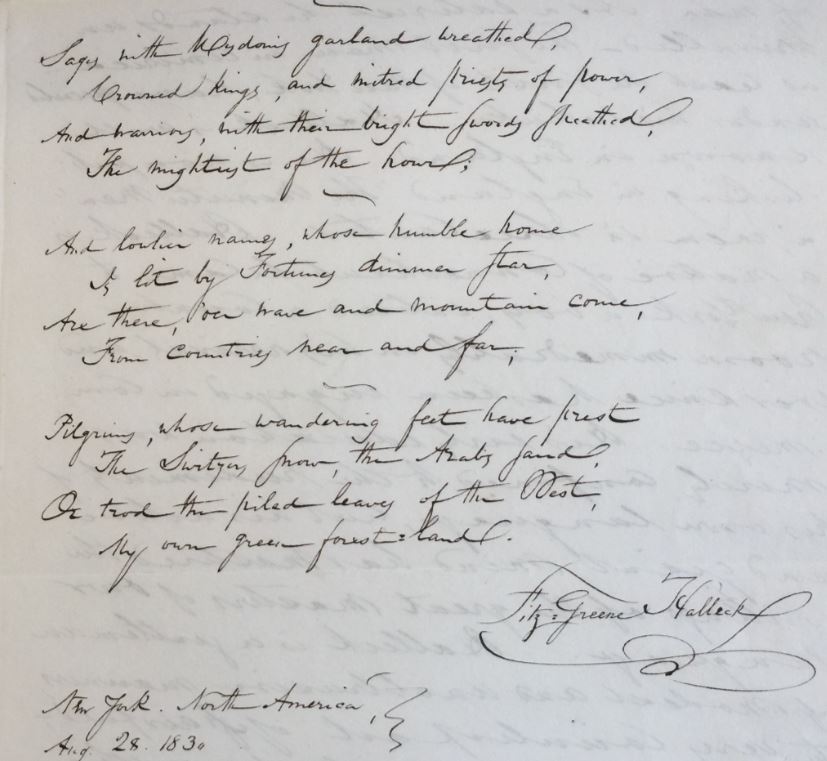 Sages with Wisdoms garland wreathed,
Crowned kings, and mitred priests of power,
And warriors, with their bright swords sheathed,
The mightiest of the hour;
And lowlier names, whose humble home
Is lit by Fortunes dimmer star,
Are there, o'er wave and mountain come,
From countries near and far;
Pilgrims, whose wandering feet have prest
The Switzers snow, the Arabs sand,
Or trod the piled leaves of the West,
My own green forest=land.
Fitz=Greene Halleck
New York. North America,
Aug. 28. 1830